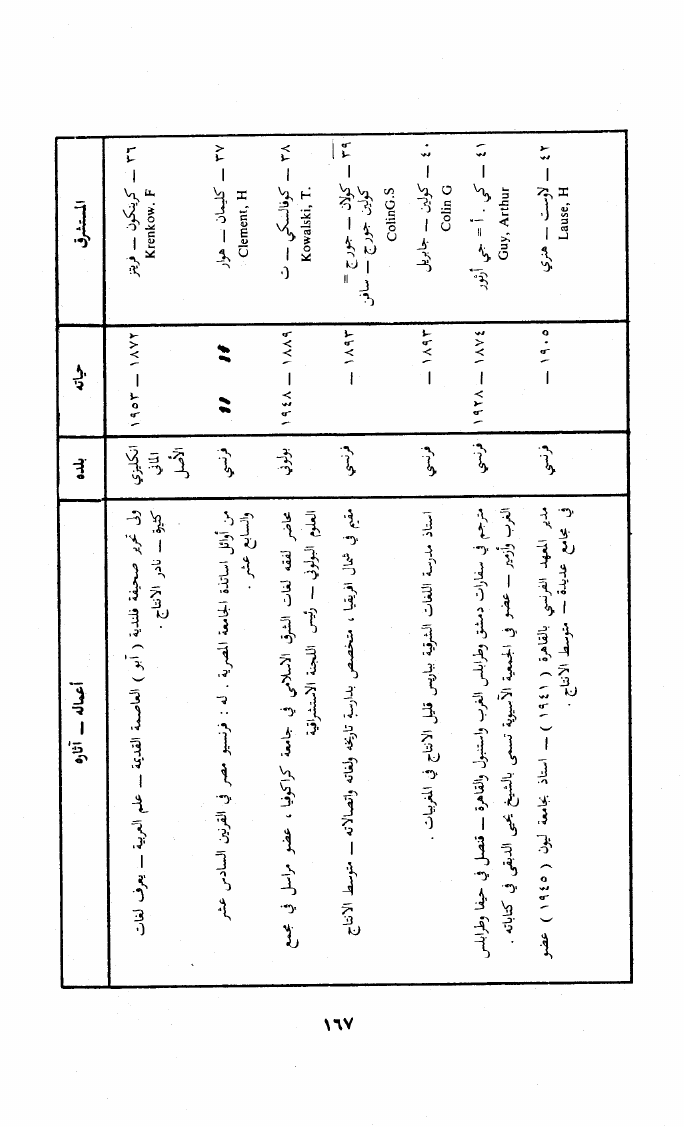 المستشرق
حياته
بلده
أعماله – آثاره
٣٦ – كرينكون – فريتز
Krenkow. F
١٨٧٢ – ١٩٥٣
انكليزي
الماني
الأصل
ولى تحرير صحيفة فلندية ( أبو ) العاصمة القديمة – علم العربية – يعرف لغات
كثيرة – نادر الانتاج .
٣٧ – كليمان – هوار
Clement, H
" "
فرنسي
من أوائل اساتذة الجامعة المصرية . له : فرنسيو مصر في القرنين السادس عشر
والسابع عشر .
٣٨ – كوفالسكي – ت
Kowalski, T.
١٨٨٩ – ١٩٤٨
بولوني
محاضر لفقه لغات الشرق الاسلامي في جامعة كراكوفيا ، عضو مراسل في مجمع
العلوم البولوني – رئيس اللجنة الاستشراقية
٣٩ – كولان – جورج =
كولين جورج – سافن
ColinG.S
١٨٩٣ –
فرنسي
مقيم في شمال افريقيا ، متخصص بدارسة تاريخه ولغاته واتصالاته – متوسط الانتاج
٤٠ – كولين – جابريل
Colin G
١٨٩٣ –
فرنسي
استاذ مدرسة اللغات الشرقية بباريس قليل الانتاج في المغربيات .
٤١ – كي . أ = جي أرثور
Guy, Arthur
١٨٧٤ – ١٩٢٨
فرنسي
مترجم في سفارات دمشق وطرابلس الغرب واستنبول والقاهرة – قنصل في حيفا وطرابلس
الغرب وأزمير – عضو في الجمعية الآسيوية تسمى بالشيخ يحيى الدبقي في كتاباته .
٤٢ – لاوست – هنري
Lause, H
١٩٠٥ –
فرنسي
مدير المعهد الفرنسي بالقاهرة ( ١٩٤١ ) – استاذ بجامعة ليون ( ١٩٤٥ ) عضو
في مجامع عديدة – متوسط الانتاج .
١٦٧